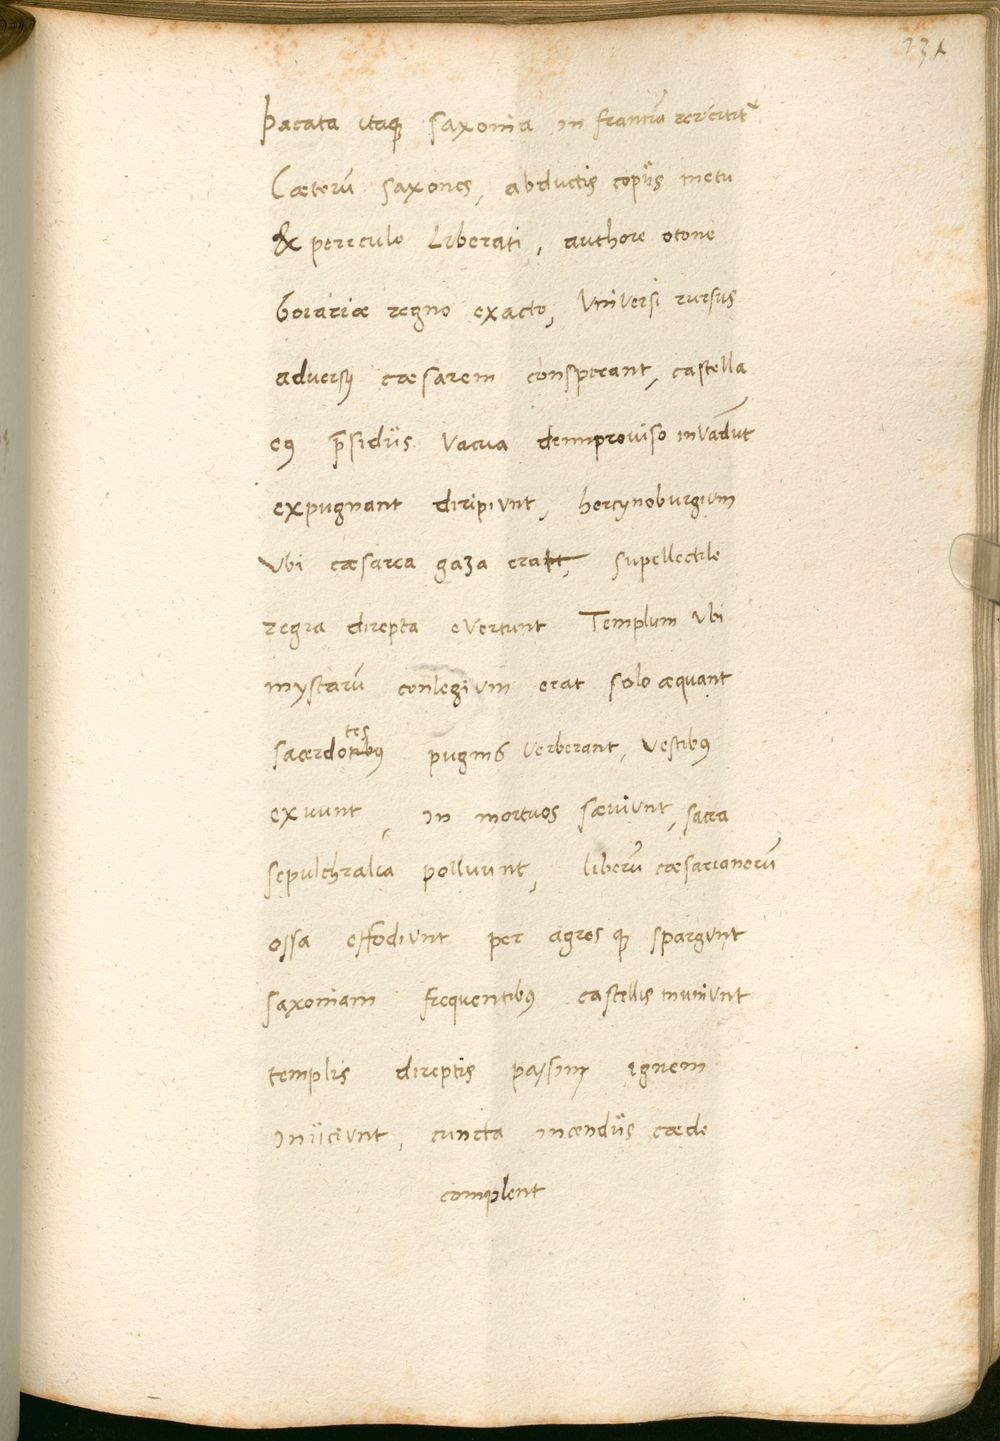 231
Pacata itaqꝫ saxonia in franciā
Cæterū saxones, abductis copiis metu
& periculo liberati, authore otone
boiariæ regno exacto, Vniversi rursus
adversꝰ cæsarem conspirant, castella
eꝰ p̄sidiis vacua deimproviso invadūt
expugnant diripiunt, hercynoburgium
Vbi cæsarea gaza erat, supellectile
regia direpta evertunt Templum Vbi
mystarū conlegium erat solo æquant
sacerdotes pugnis verberant, vestibꝰ
exuunt, in mortuos sæviunt, sacra
sepulchralia polluunt, liberū cæsarianorū
ossa effodiunt per agrosqꝫ spargunt
saxoniam frequentibꝰ castellis muniunt
templis direptis passim ignem
iniiciunt, cuncta incendiis cæde
complent